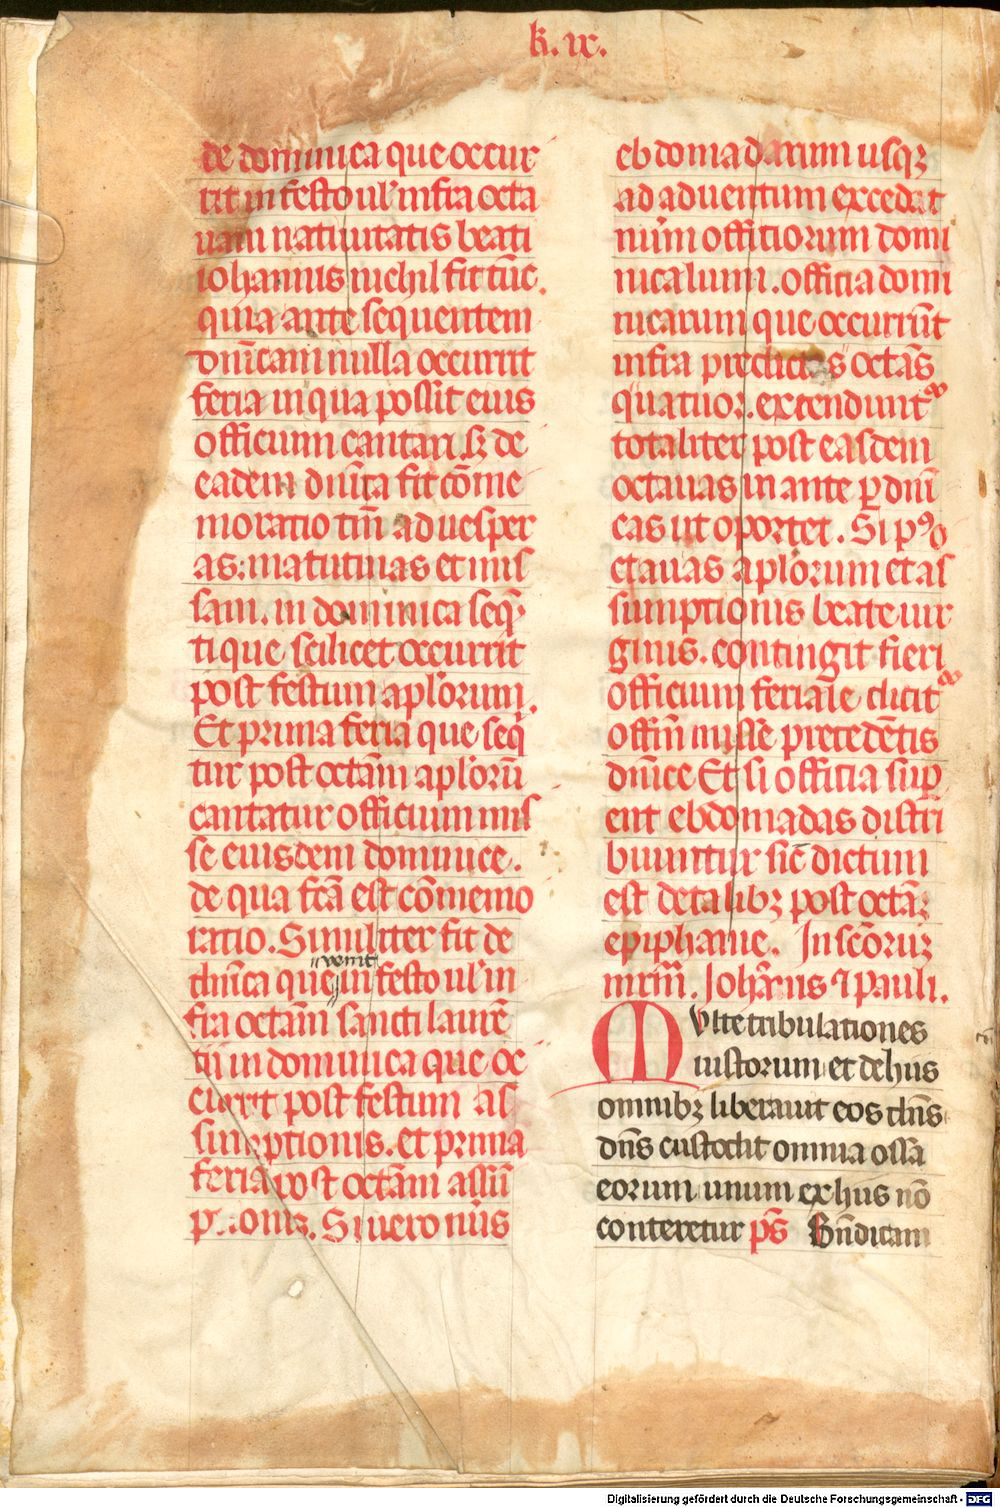 k. ix.
de dominica que occur
rit in festo ul' infra octa
uam natiuitatis beati
iohannis nichil fit tūc.
quia ante sequentem
dn̄icam nulla occurrit
feria in qua possit eius
officium cantari. sꝫ de
eadem dn̄ica fit cōme
moratio tm̄ ad uesper
as: matutinas et mis
sam. in dominica seq̄
ti que scilicet occurrit
post festum apl'orum.
Et prima feria que seq̄
tur post octam̄ apl'orū
cantatur officium mis
se eiusdem dominice.
de qua fc̄a est cōmemo
ratio. Similiter fit de
dn̄ica que uenit in festo ul' in
fra octam̄ sancti laurē
tii in dominica que oc
currit post festum as
sumptionis. et prima
feria post octam̄ assū
p..onis. Si uero nūs
ebdomadarum usqꝫ
ad aduentum excedat
nūm offitiorum domi
nicalium. officia domi
nicarum que occurrūt
infra predictas octās
quatuor. extendunt᷑
totaliter post easdem
octauas in ante ꝑ dn̄i
cas ut oportet. Si pꝰ o
ctauas apl'orum et as
sumptionis beate uir
ginis. contingit fieri
officium feriale dicit᷑
offm̄ misse precedētis
dn̄ice Et si officia suꝑ
ent ebdomadas distri
buuntur sic̄ dictum
est de talibꝫ post octāꝫ
epiphanie. In sc̄oruꝫ
mr̄m. Joh̄annis ⁊ pauli.
Multe tribulationes
iustorum et de hiis
omnibꝫ liberauit eos dn̄s
dn̄s custodit omnia ossa
eorum unum ex hiis nō
conteretur p̄s Bn̄dicam
Digitalisierung gefördert durch die Deutsche Forschungsgemeinschaft - DFG